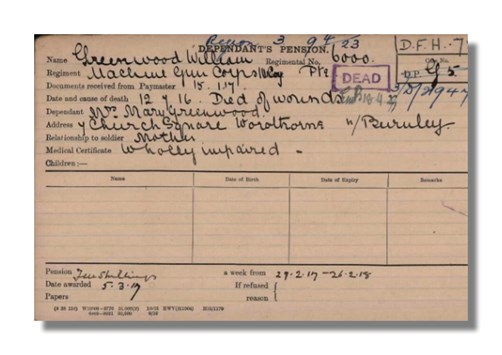 DEPENDANT'S PENSION. D.F.H.-7
Name Greenwood William Regimental No. 6000.
Regiment Machine Gun Corps Pte DEAD
Documents received from Paymaster 15.1.17.
Date and cause of death 12 7 16. Died of wounds
Dependant Mrs Mary Greenwood.
Address 7 Church Square Worsthorne n/Burnley.
Relationship to soldier Mother
Medical Certificate Wholly impaired -
Children:—
Name Date of Birth Date of Expiry Remarks
Pension Ten Shillings a week from 27.2.17 – 26.2.18
Date awarded 5.3.17 If refused
Papers reason